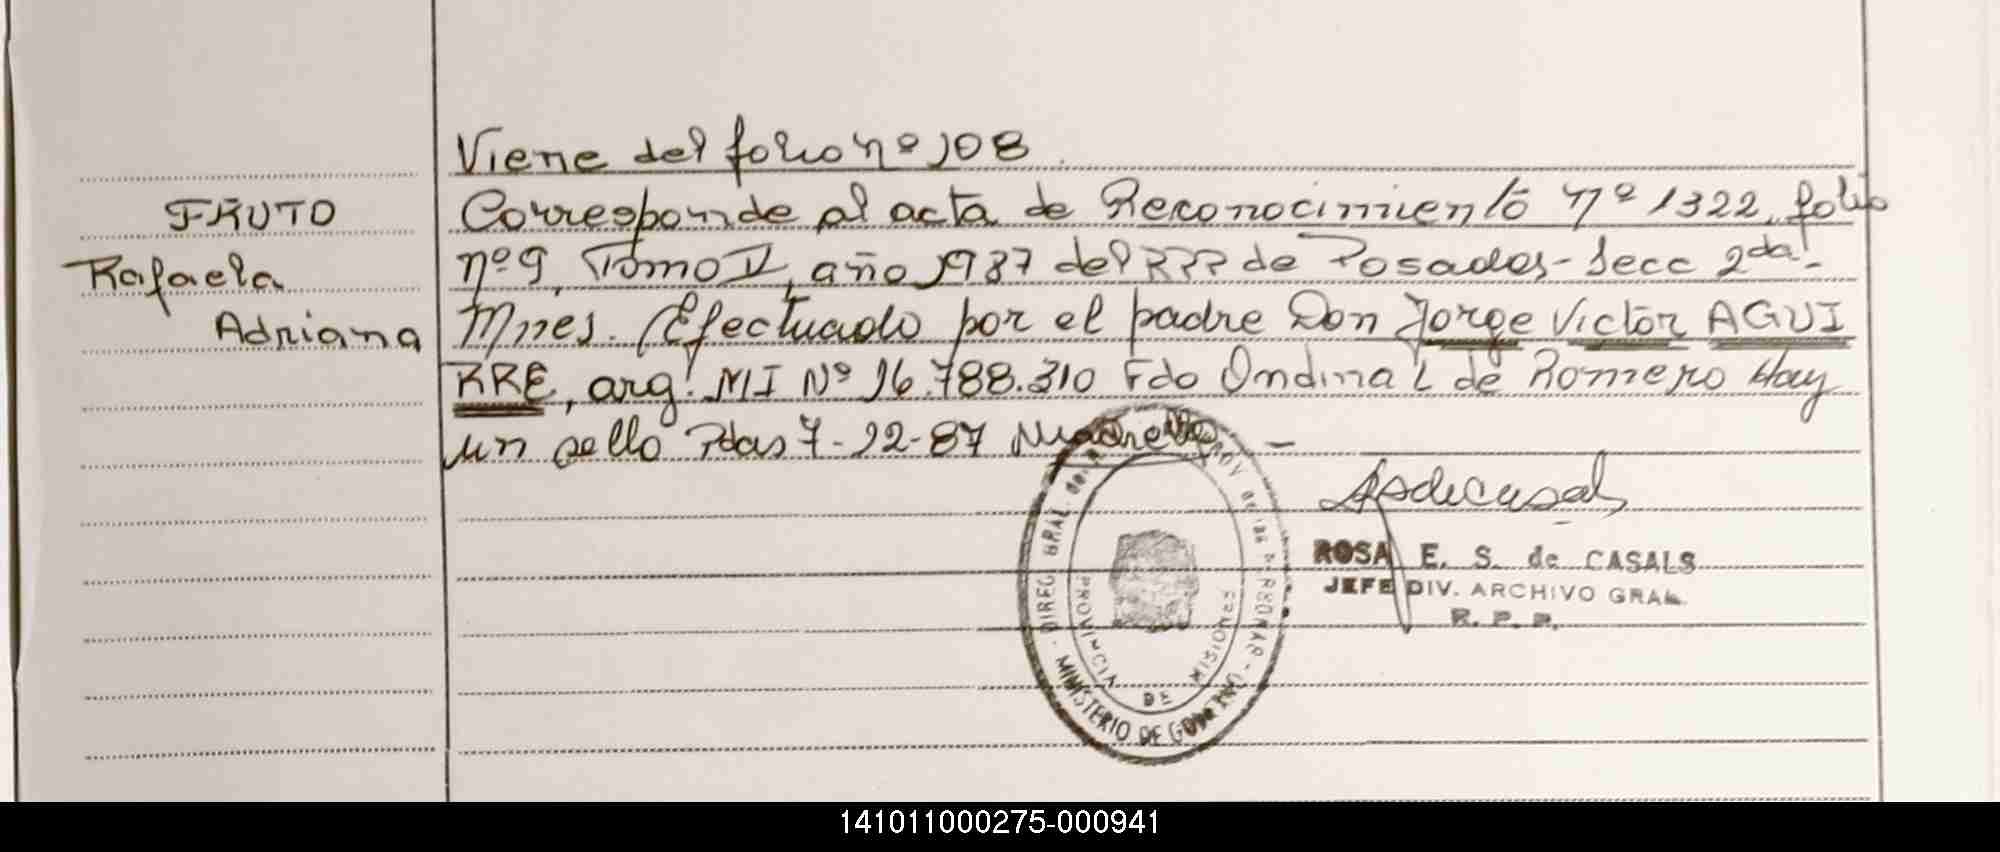 Viene del folio nº 108
FRUTO
Corresponde al acta de Reconocimiento nº 1322, folio
Rafaela
nº 9, Tomo II, año 1987 del RPP de Posadas - Secc 2da
Adriana
Mnes. Efectuado por el padre Don Jorge Victor AGUI
RRE, arg. MI Nº 16.788.310 Fdo Ondina L de Romero Hay
un sello Pdas 7-12-87
ROSA E. S. de CASALS
JEFE DIV. ARCHIVO GRAL.
R. P. P.
DIREC GRAL. del PROV de las PERSONAS - MINISTERIO DE GOBIERNO
PROVINCIA DE MISIONES
141011000275-000941